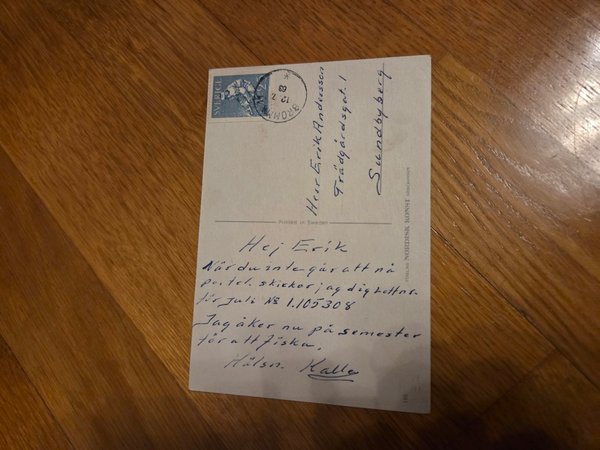 Hej Erik
När du inte går att nå
per tel. skickar jag dig Lottnr.
för Juli No 1.105308
Jag åker nu på semester
för att fiska.
Hälsn. Kalle
Printed in Sweden
SVERIGE
BROMMA
12 7
Herr Erik Andersson
Trädgårdsgat. 1
Sundbyberg
NORDISK KONST